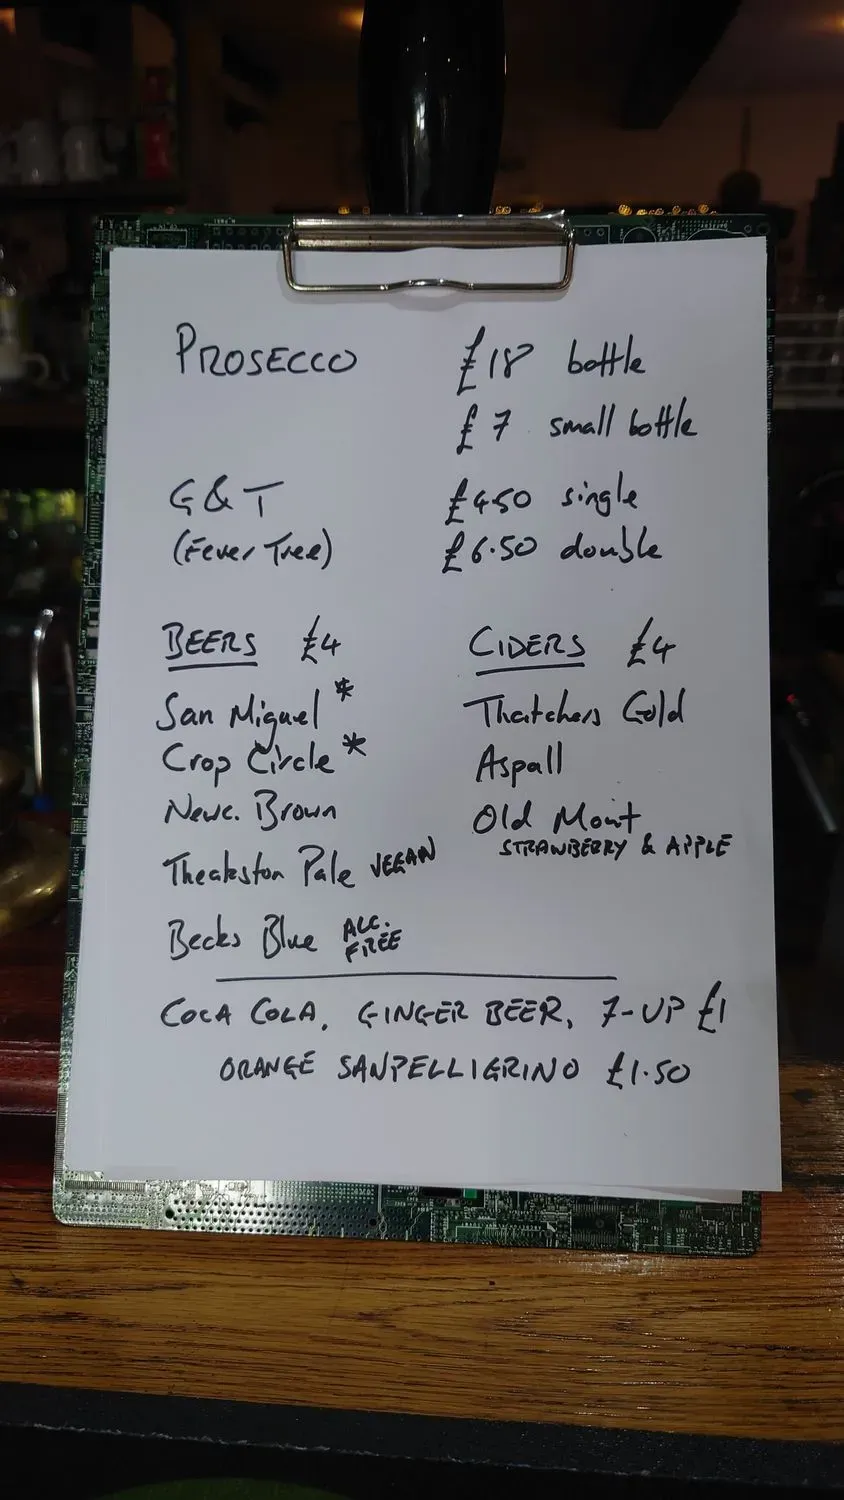 PROSECCO £18 bottle
£7 small bottle
G&T £4.50 single
(Fever Tree) £6.50 double
BEERS £4
San Miguel *
Crop Circle *
Newc. Brown
Theakston Pale VEGAN
Becks Blue ALC. FREE
CIDERS £4
Thatchers Gold
Aspall
Old Mout
STRAWBERRY & APPLE
COCA COLA, GINGER BEER, 7-UP £1
ORANGE SANPELLIGRINO £1.50